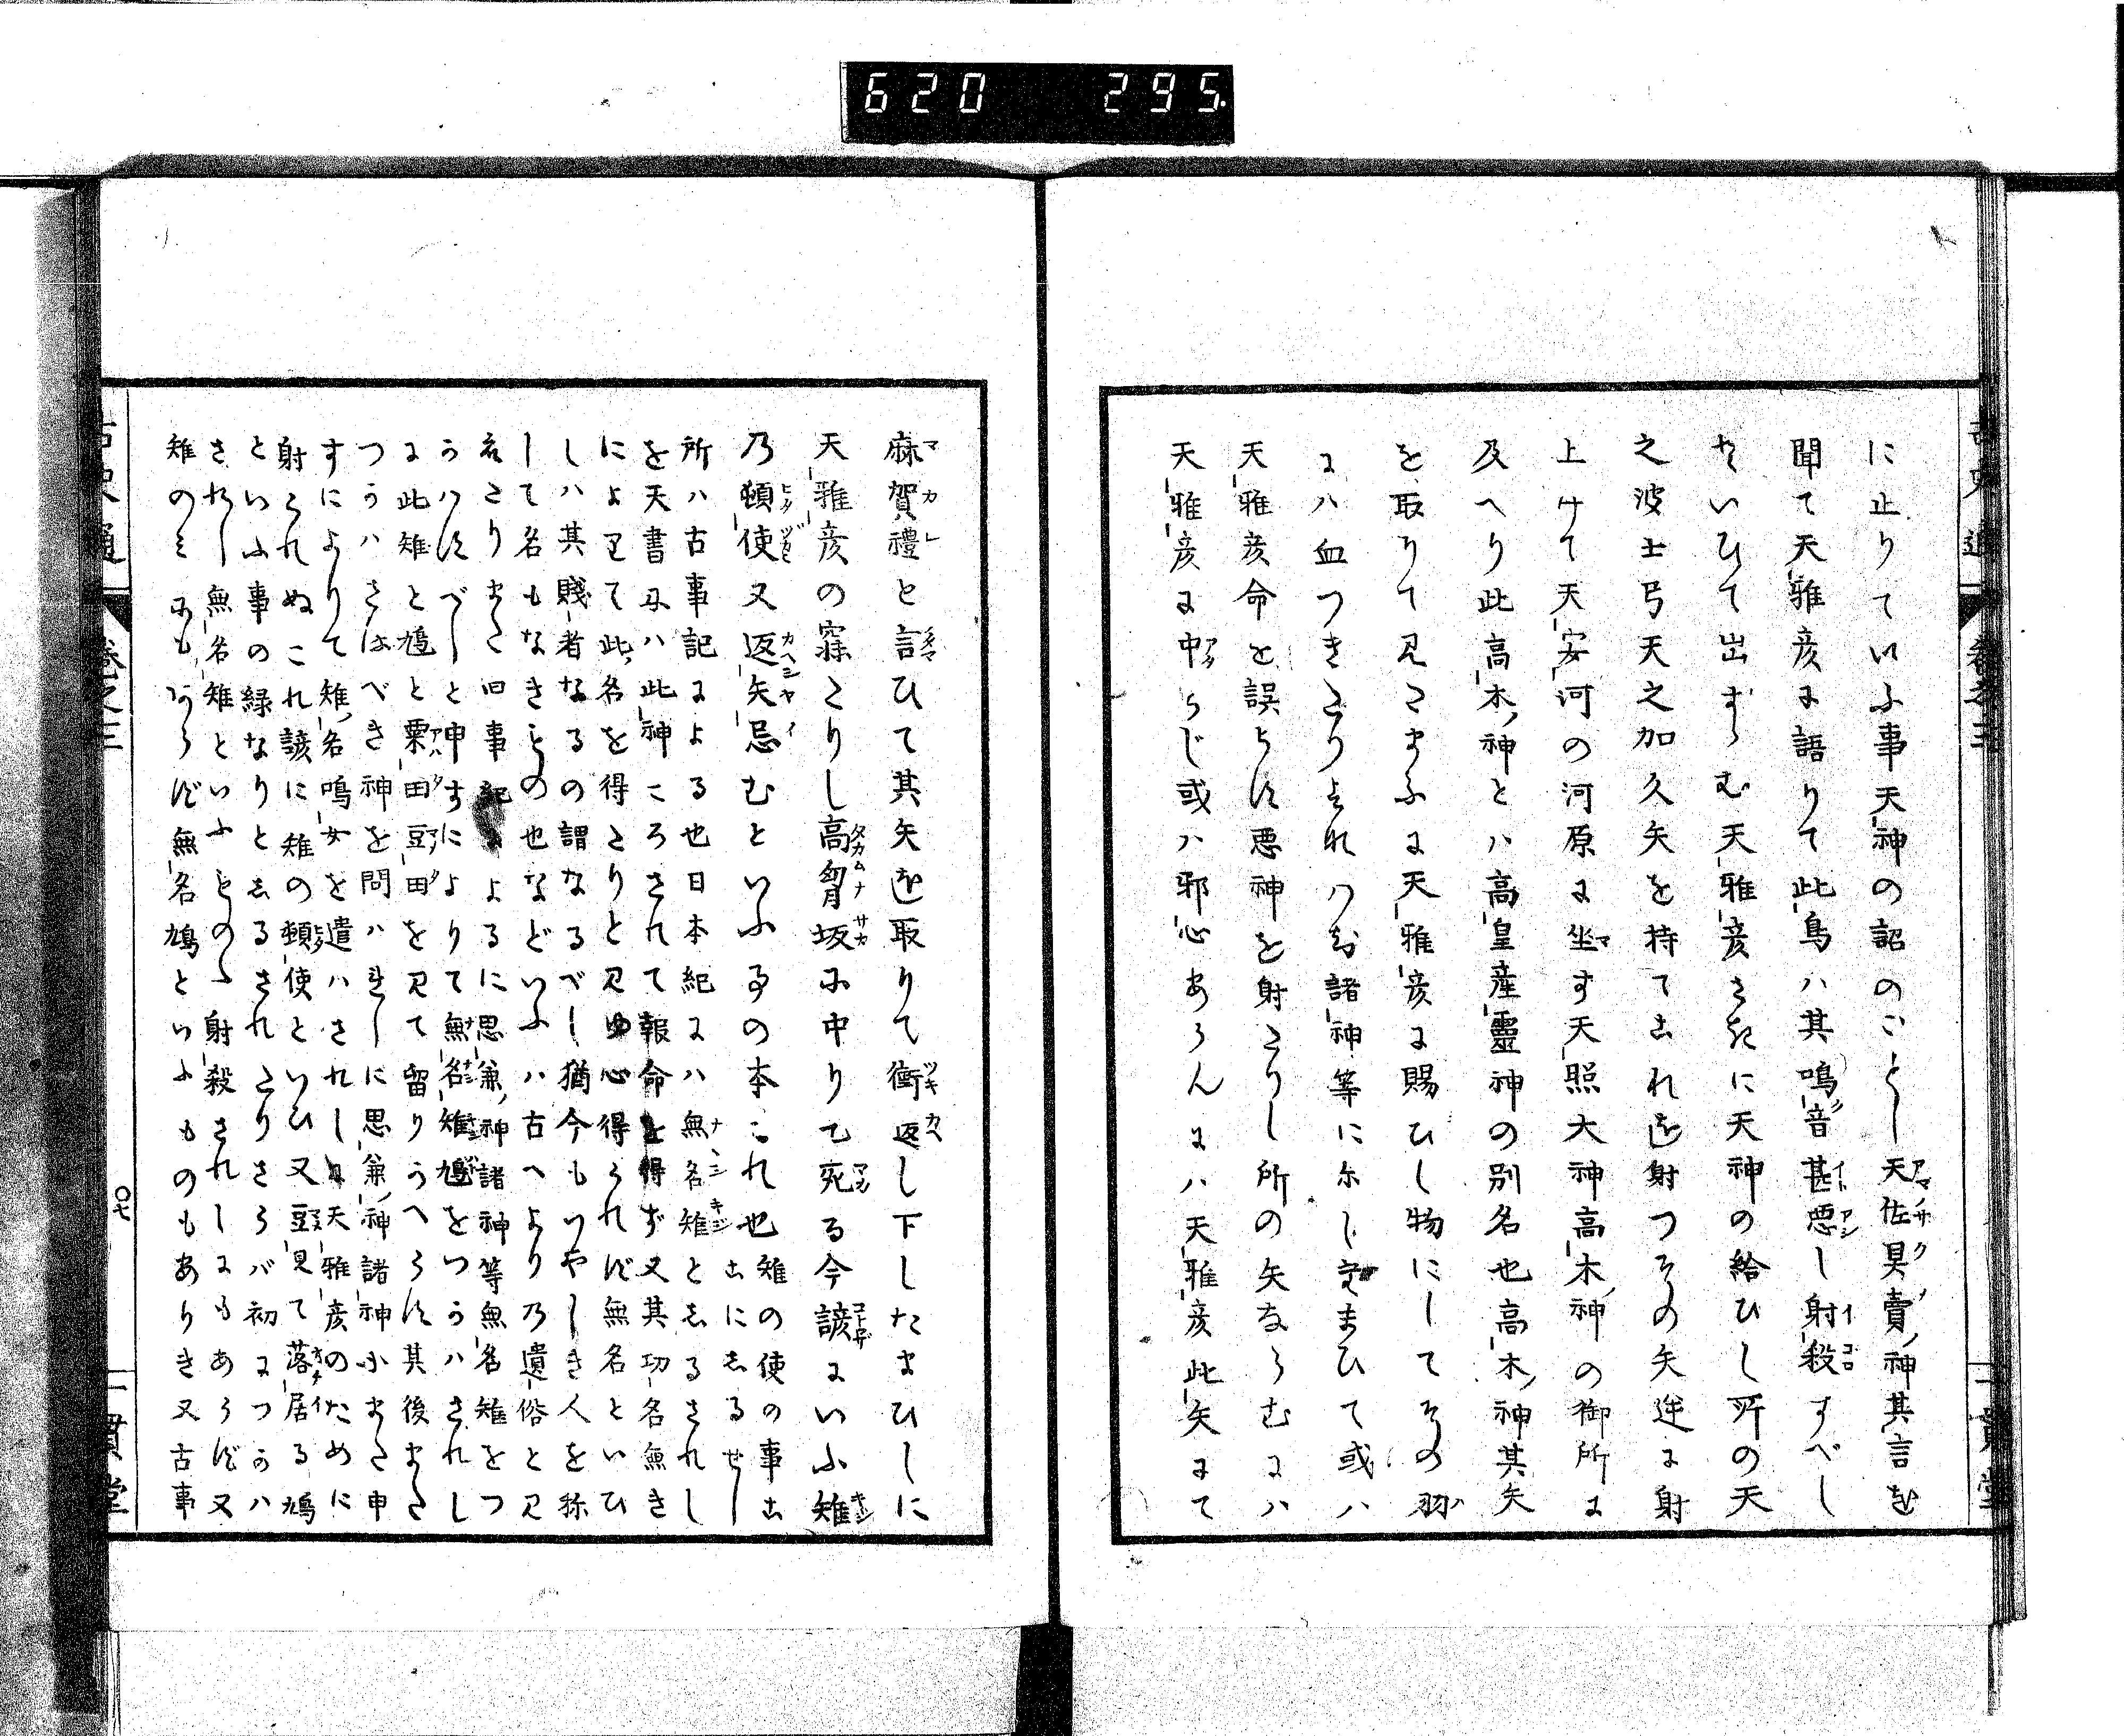 620 295.
古史通 卷之三 一貫堂
に止りていふ事天神の詔のことし天佐具賣神其言を
聞て天雅彦に語りて此鳥ハ其鳴音甚悪し射殺すべし
といひて出すらむ天雅彦さきに天神の給ひし所の天
之波士弓天之加久矢を持てこれを射つその矢逆に射
上けて天安河の河原に坐す天照大神高木神の御所に
及へり此高木神とハ高皇産靈神の別名也高木神其矢
を取りて見たまふに天雅彦に賜ひし物にしてその羽
にハ血つきたりされハ諸神等に示し玄まひて或ハ
天雅彦命を誤らす悪神を射たりし所の矢ならむにハ
天雅彦に中らじ或ハ邪心あらんにハ天雅彦此矢にて
麻賀禮と言ひて其矢を取りて衝返し下したまひしに
天雅彦の寐たりし高胷坂に中りて死る今諺にいふ雉
乃頓使又返矢忌むといふ事の本これ也雉の使の事こ
こにしるせし
所ハ古事記による也日本紀にハ無名雉としるされし
を天書にハ此神ころされて報命を得ず又其功名無き
によりて此名を得たりと見ゆ心得られず無名といひ
しハ其賤者なるの謂なるべし猶今もいやしき人を称
して名もなきものも也などいふハ古へより乃遺俗と見
えたりまた旧事紀によるに思兼神諸神等無名雉をつ
かハすべしと申すによりて無名雉鳩をつかハされし
に此雉と鳩と粟田豆田を見て留りかへらす其後また
つかハさるべき神を問ハれしに思兼神諸神等また申
すによりて雉名鳴女を遣ハされしに天雅彦のために
射られぬこれ諺に雉の頓使といひ又豆見て落居る鳩
といふ事の縁なりとしるされたりさらバ初につかハ
されし無名雉といふもの射殺されしにもあらす又
雉のミにもあらず無名鳩といふものもありき又古事
古史通 卷之三 〇七 一貫堂